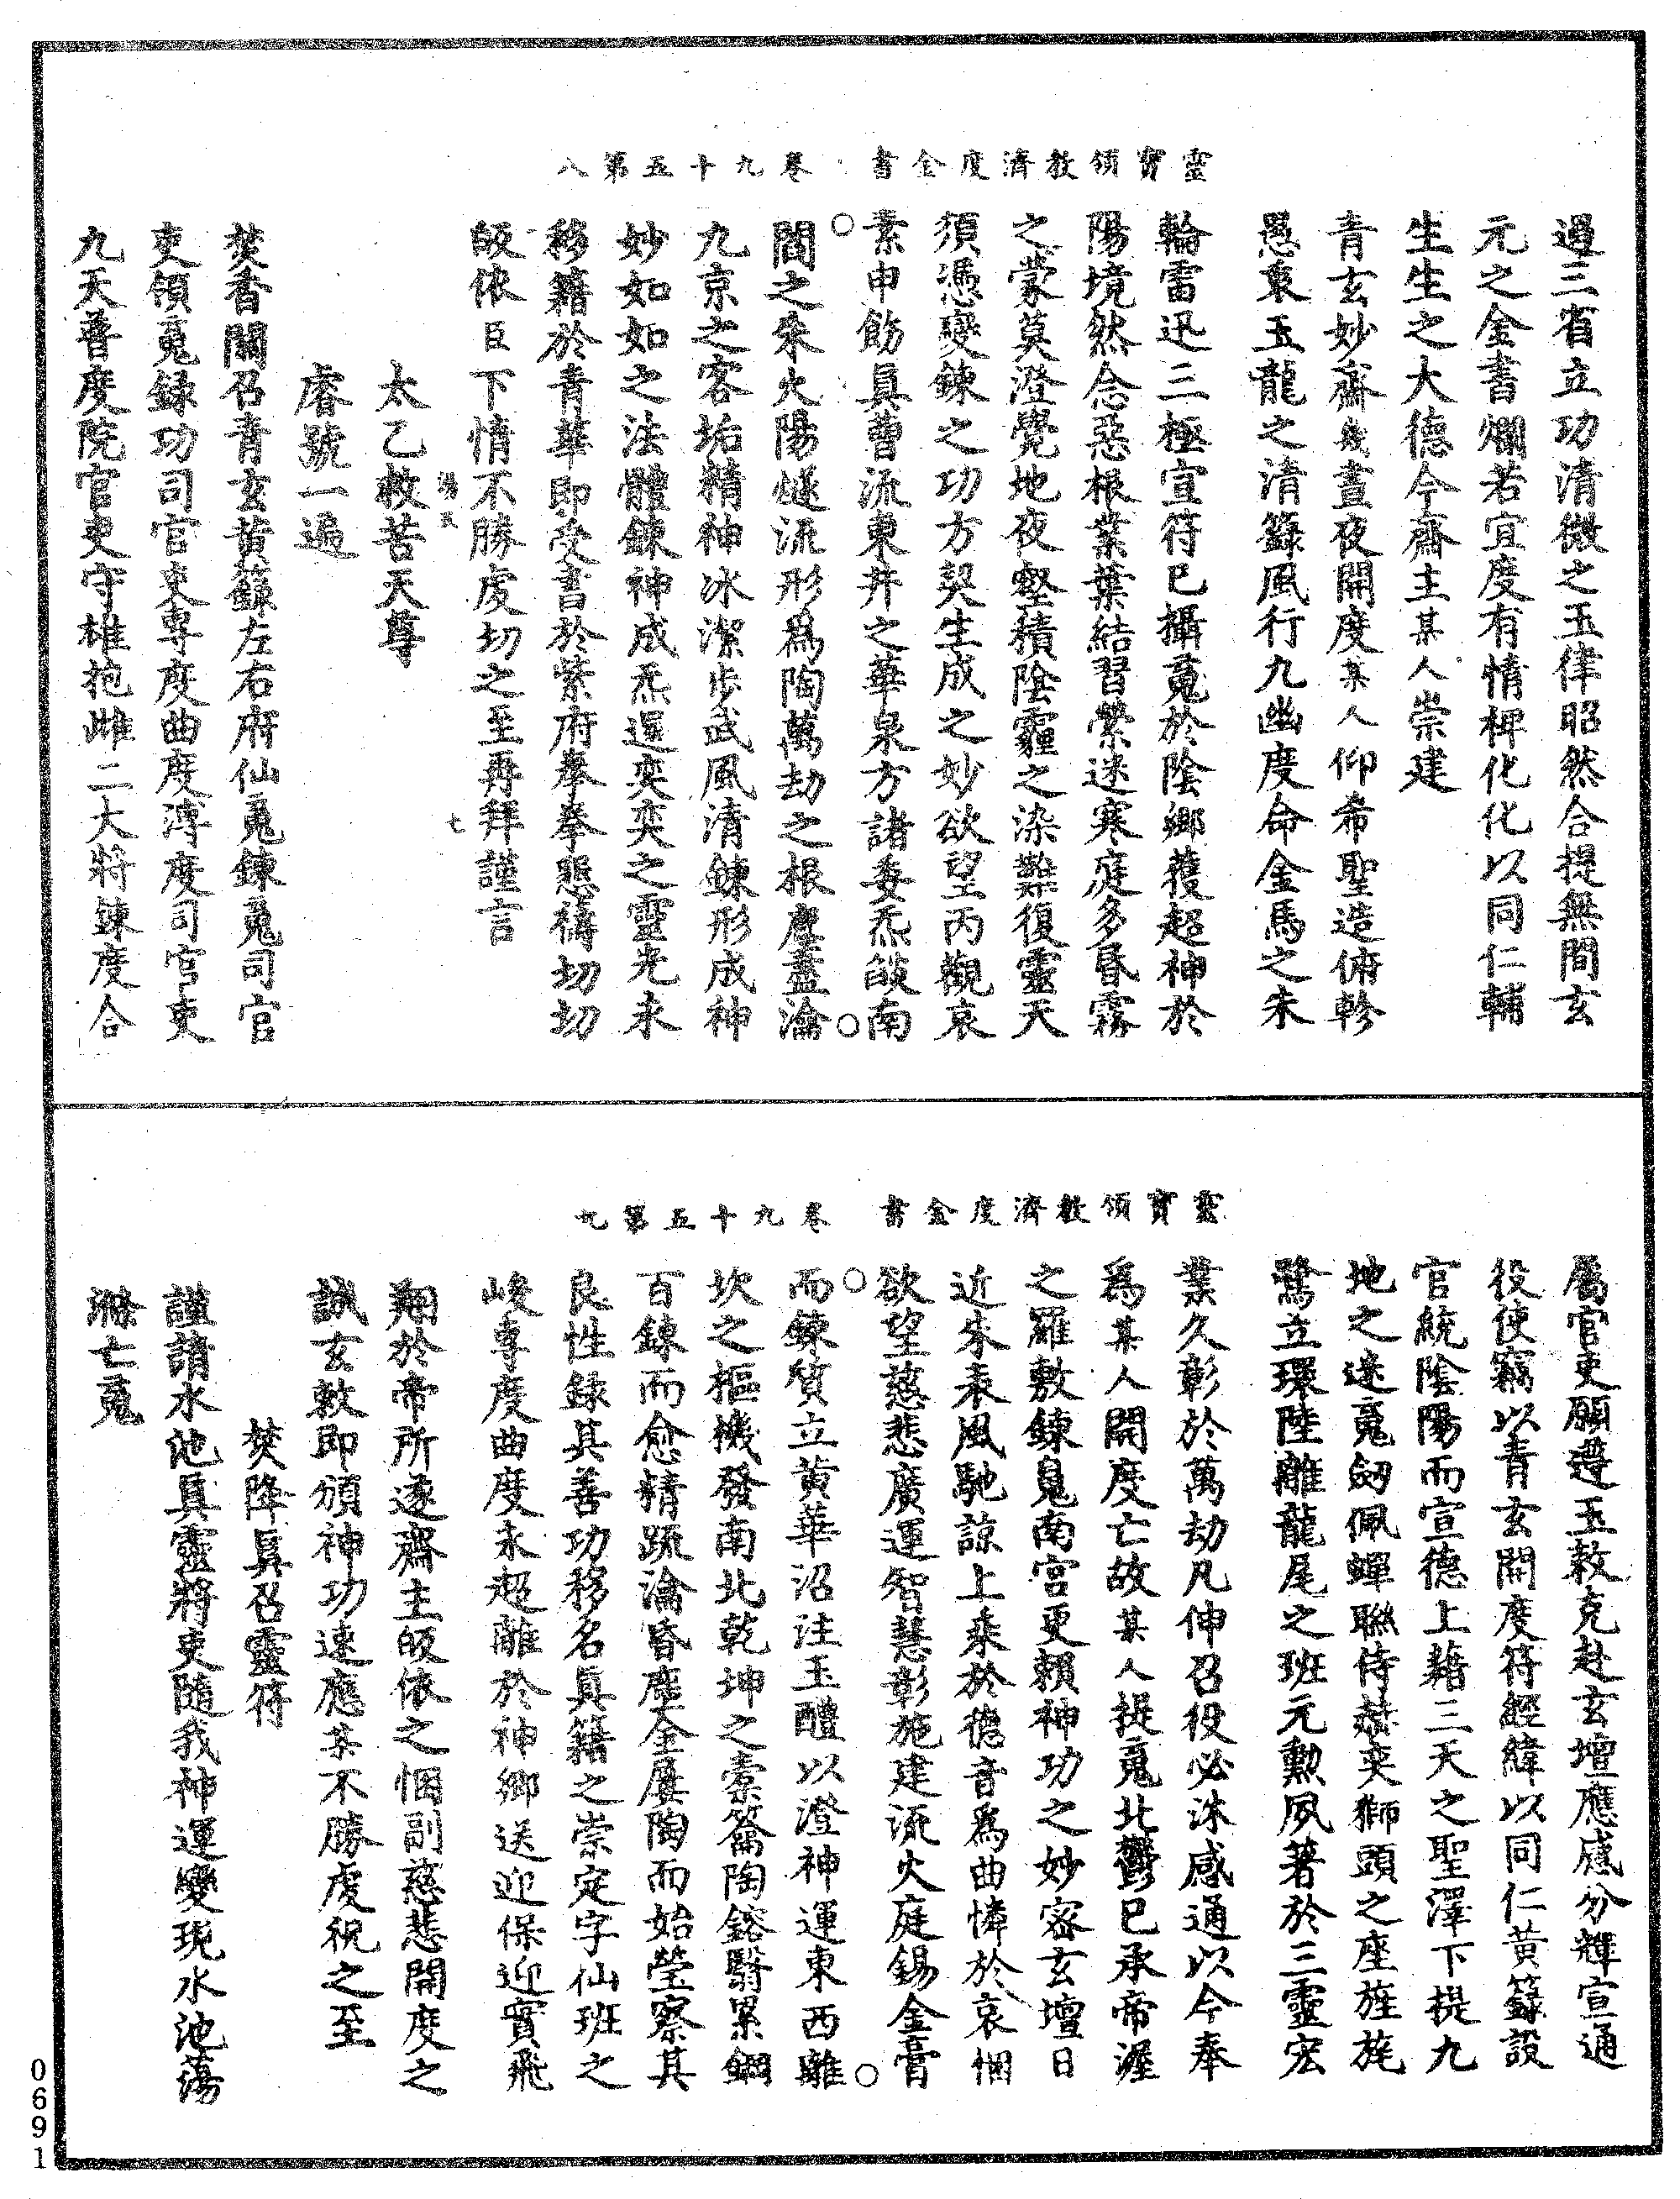 靈寶領教濟度金書 卷九十五第八
過三省立功清微之玉律昭然合提無間玄
元之金書爛若宜度有情稗化化以同仁輔
生生之大德今齋主某人崇建
青玄妙齋幾晝夜開度某人仰希聖造俯軫
愚衷玉龍之清籙風行九幽度命金馬之朱
輪雷迅三極宣符已攝䰟於陰鄉獲超神於
陽境然念惡根業葉結習縈迷寒庭多昏霧
之蒙莫澄覺地夜壑積陰霾之染難復靈天
須憑變鍊之功方契生成之妙欲望丙觀哀
素申飭眞曹流東井之華泉方諸委炁皈南
閶之朱火陽燧流形爲陶萬劫之根塵盡瀹
九京之客垢精神冰潔步武風清鍊形成神
妙如如之法體鍊神成炁還奕奕之靈光永
移籍於青華即受書於紫府拳拳懇禱切切
皈依臣下情不勝虔切之至再拜謹言
太乙救苦天尊
睿號一遍
焚香關召青玄黄籙左右府仙䰟鍊䰟司官
吏領䰟録功司官吏專度曲度溥度司官吏
九天普度院官吏守雄抱雌二大將鍊度合
靈寶領教濟度金書 卷九十五第九
屬官吏願遵玉敕克赴玄壇應感分輝宣通
役使竊以青玄開度符經緯以同仁黄籙設
官統陰陽而宣德上藉三天之聖澤下提九
地之迷䰟劒佩蟬聯侍趍夾獅頭之座旌旄
鷺立環陸離龍尾之班元勲夙著於三靈宏
業久彰於萬劫凡伸召役必洙感通以今奉
爲某人開度亡故某人提䰟北酆已承帝渥
之羅敷鍊䰟南宮更賴神功之妙密玄壇日
近朱秉風馳諒上乘於德音爲曲憐於哀悃
欲望慈悲廣運智慧彰施建流火庭錫金膏
而鍊質立黄華沼注玉醴以澄神運東西離
坎之樞機發南北乾坤之橐籥陶鎔翳累鋼
百鍊而愈精疏瀹昏塵金屢陶而始瑩察其
良性録其善功移名眞籍之崇定字仙班之
峻專度曲度永超離於神鄉送迎保迎實飛
翔於帝所遂齋主皈依之悃副慈悲開度之
誠玄敕即頒神功速應某不勝虔祝之至
焚降眞召靈符
謹請水池眞靈將吏隨我神運變現水池蕩
滌亡䰟
0691